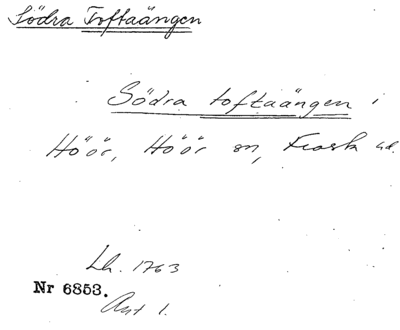 Södra Toftaängen
Södra toftaängen i
Höör, Höör sn, Frosta hd.
Lh. 1763
Nr 6853.
Akt 1.